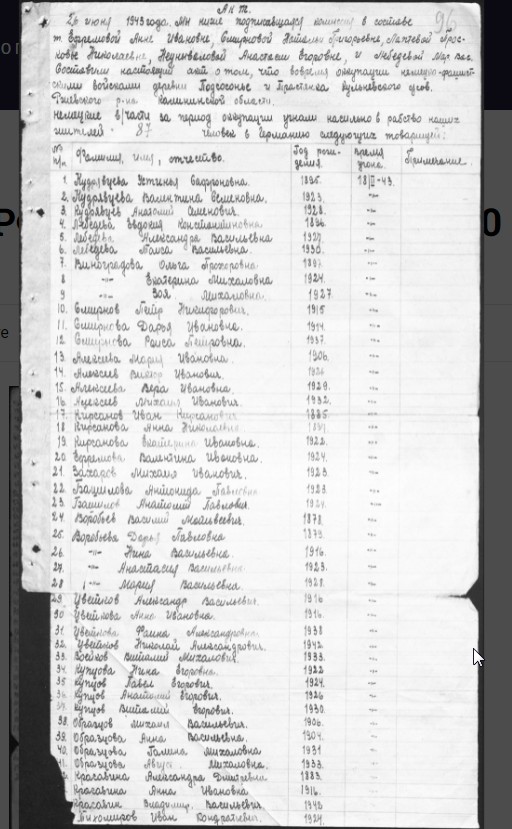 Акт.
26 июня 1943 года. Мы ниже подписавшиеся комиссия в составе
т. Ефремовой Анне Ивановне, Смирновой Натальи Григорьевне, Лаптевой Прос-
ковье Николаевне, Анастасии Егоровне, и Лебедевой
Составили настоящий акт о том, что вовремя оккупации немецко-фашист-
скими войсками деревни Подсосенье и
Ржевского р-на Калининской области.
Немецкие власти за период оккупации угнали насильно в рабство наших
жителей 87 человек в Германию следующих товарищей:
№ п/п Фамилия, имя, отчество. Год рож-дения. Время угона. Примечание.
1. Кудрявцева Устинья Сафроновна. 1895. 18/II-43.
2. Кудрявцева Валентина Семеновна. 1923. -"-
3. Кудрявцев Анатолий Семенович. 1928. -"-
4. Лебедева Евдокия Константиновна 1896. -"-
5. Лебедева Александра Васильевна 1927. -"-
6. Лебедева Васильевна 1930. -"-
7. Виноградова Ольга Прохоровна. -"-
8 -"- Екатерина Михайловна 1924. -"-
9 -"- Зоя Михайловна. 1927. -"-
10. Смирнов Петр Никифорович. 1915 -"-
11. Смирнова Дарья Ивановна. 1914. -"-
12. Смирнова Раиса Петровна. 1937. -"-
13. Алексеева Мария Ивановна. 1906. -"-
14. Алексеев Виктор Иванович. -"-
15. Алексеева Вера Ивановна. 1929. -"-
16. Алексеев Михаил Иванович. 1932. -"-
17. Кирсанов Иван Кирсанович 1885. -"-
18 Кирсанова Анна Николаевна -"-
19. Кирсанова Екатерина Ивановна. 1922. -"-
20. Ефремова Валентина Ивановна. 1924. -"-
21. Захаров Михаил Иванович. 1923. -"-
22. Башилова Антонида Павловна 1923. -"-
23. Башилов Анатолий Павлович. -"-
24. Воробьев Василий Матвеевич. 1878. -"-
25. Воробьева Дарья Павловна 1879. -"-
26. -"- Нина Васильевна. 1916. -"-
27. -"- Анастасия Васильевна 1923. -"-
28 -"- Мария Васильевна. 1928. -"-
29. Цветков Александр Васильевич. 1916 -"-
30 Цветкова Анна Ивановна. 1916. -"-
31. Цветкова Фаина Александровна. 1938 -"-
32. Цветков Николай Александрович. 1942. -"-
33. Виталий Михайлович. 1933. -"-
34. Купцова Нина Егоровна. 1922 -"-
35 Купцов Павел Егорович. 1924. -"-
36. Купцов Анатолий Егорович. 1926 -"-
37. Купцов Виталий Егорович. 1930. -"-
38. Образцов Михаил Васильевич. 1906. -"-
39. Образцова Анна Васильевна. 1904. -"-
40. Образцова Галина Михайловна 1931 -"-
41. Образцова Михайловна. 1933. -"-
Красавина Александра Дмитриевна 1883. -"-
Красавина Анна Ивановна 1916. -"-
Владимир. Васильевич. -"-
Тихомиров Иван Кондратьевич. 1924. -"-